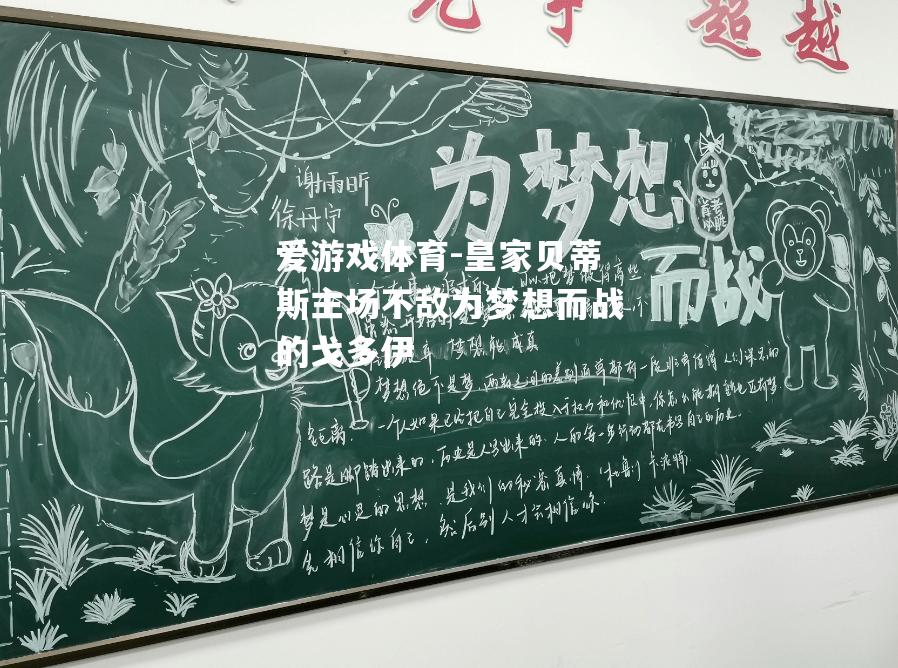 超越
谢雨昕
徐丹宁
为梦想
而战
爱游戏体育-皇家贝蒂
斯主场不敌为梦想而战
的戈多伊
梦想能成真
梦想绝不是梦,两者之间的差别通常都有一段非常值得人们深思的
距离。一个人如果已经把自己完全投入于权力和仇恨中,你怎么能期望他还有梦
路是脚踏出来的,历史是人写出来的。人的每一步行动都在书写自己的历史。
梦是心灵的思想,是我们的秘密真情。(杜鲁门·卡波特)
先相信你自己,然后别人才会相信你.